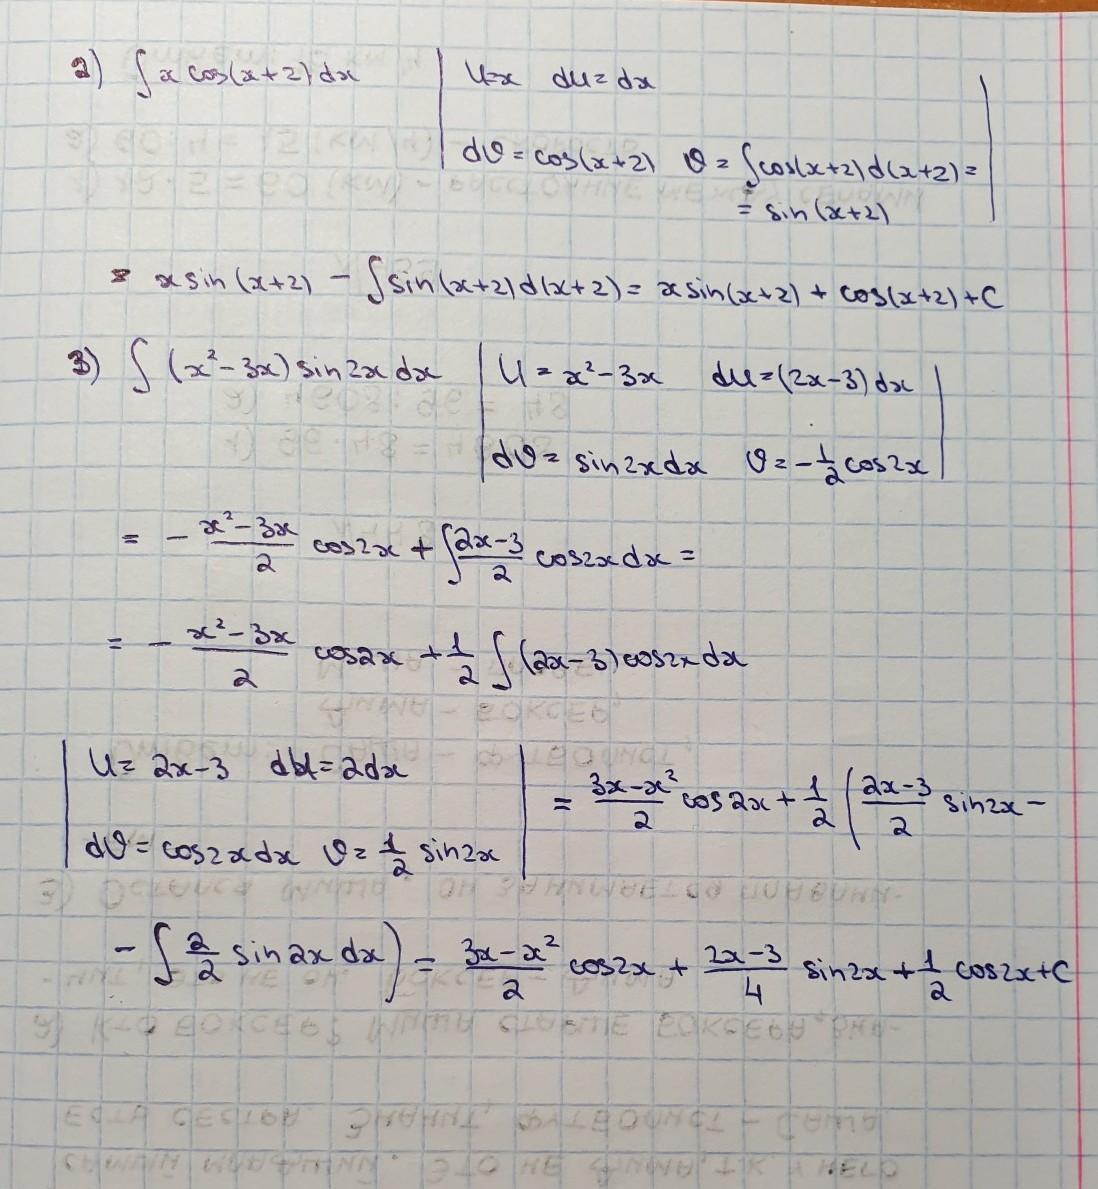 2) ∫ x cos(x+2) dx | U=x du=dx
dϑ = cos(x+2) ϑ = ∫cos(x+2)d(x+2) =
= sin(x+2) |
= x sin(x+2) - ∫sin(x+2)d(x+2) = x sin(x+2) + cos(x+2) + C
3) ∫ (x²-3x) sin2x dx | U = x²-3x du=(2x-3)dx
dϑ = sin2x dx ϑ = -1/2 cos2x |
= - (x²-3x)/2 cos2x + ∫ (2x-3)/2 cos2x dx =
= - (x²-3x)/2 cos2x + 1/2 ∫ (2x-3) cos2x dx
| U = 2x-3 du = 2dx
dϑ = cos2x dx ϑ = 1/2 sin2x | = (3x-x²)/2 cos2x + 1/2 ( (2x-3)/2 sin2x -
- ∫ 2/2 sin2x dx ) = (3x-x²)/2 cos2x + (2x-3)/4 sin2x + 1/2 cos2x + C